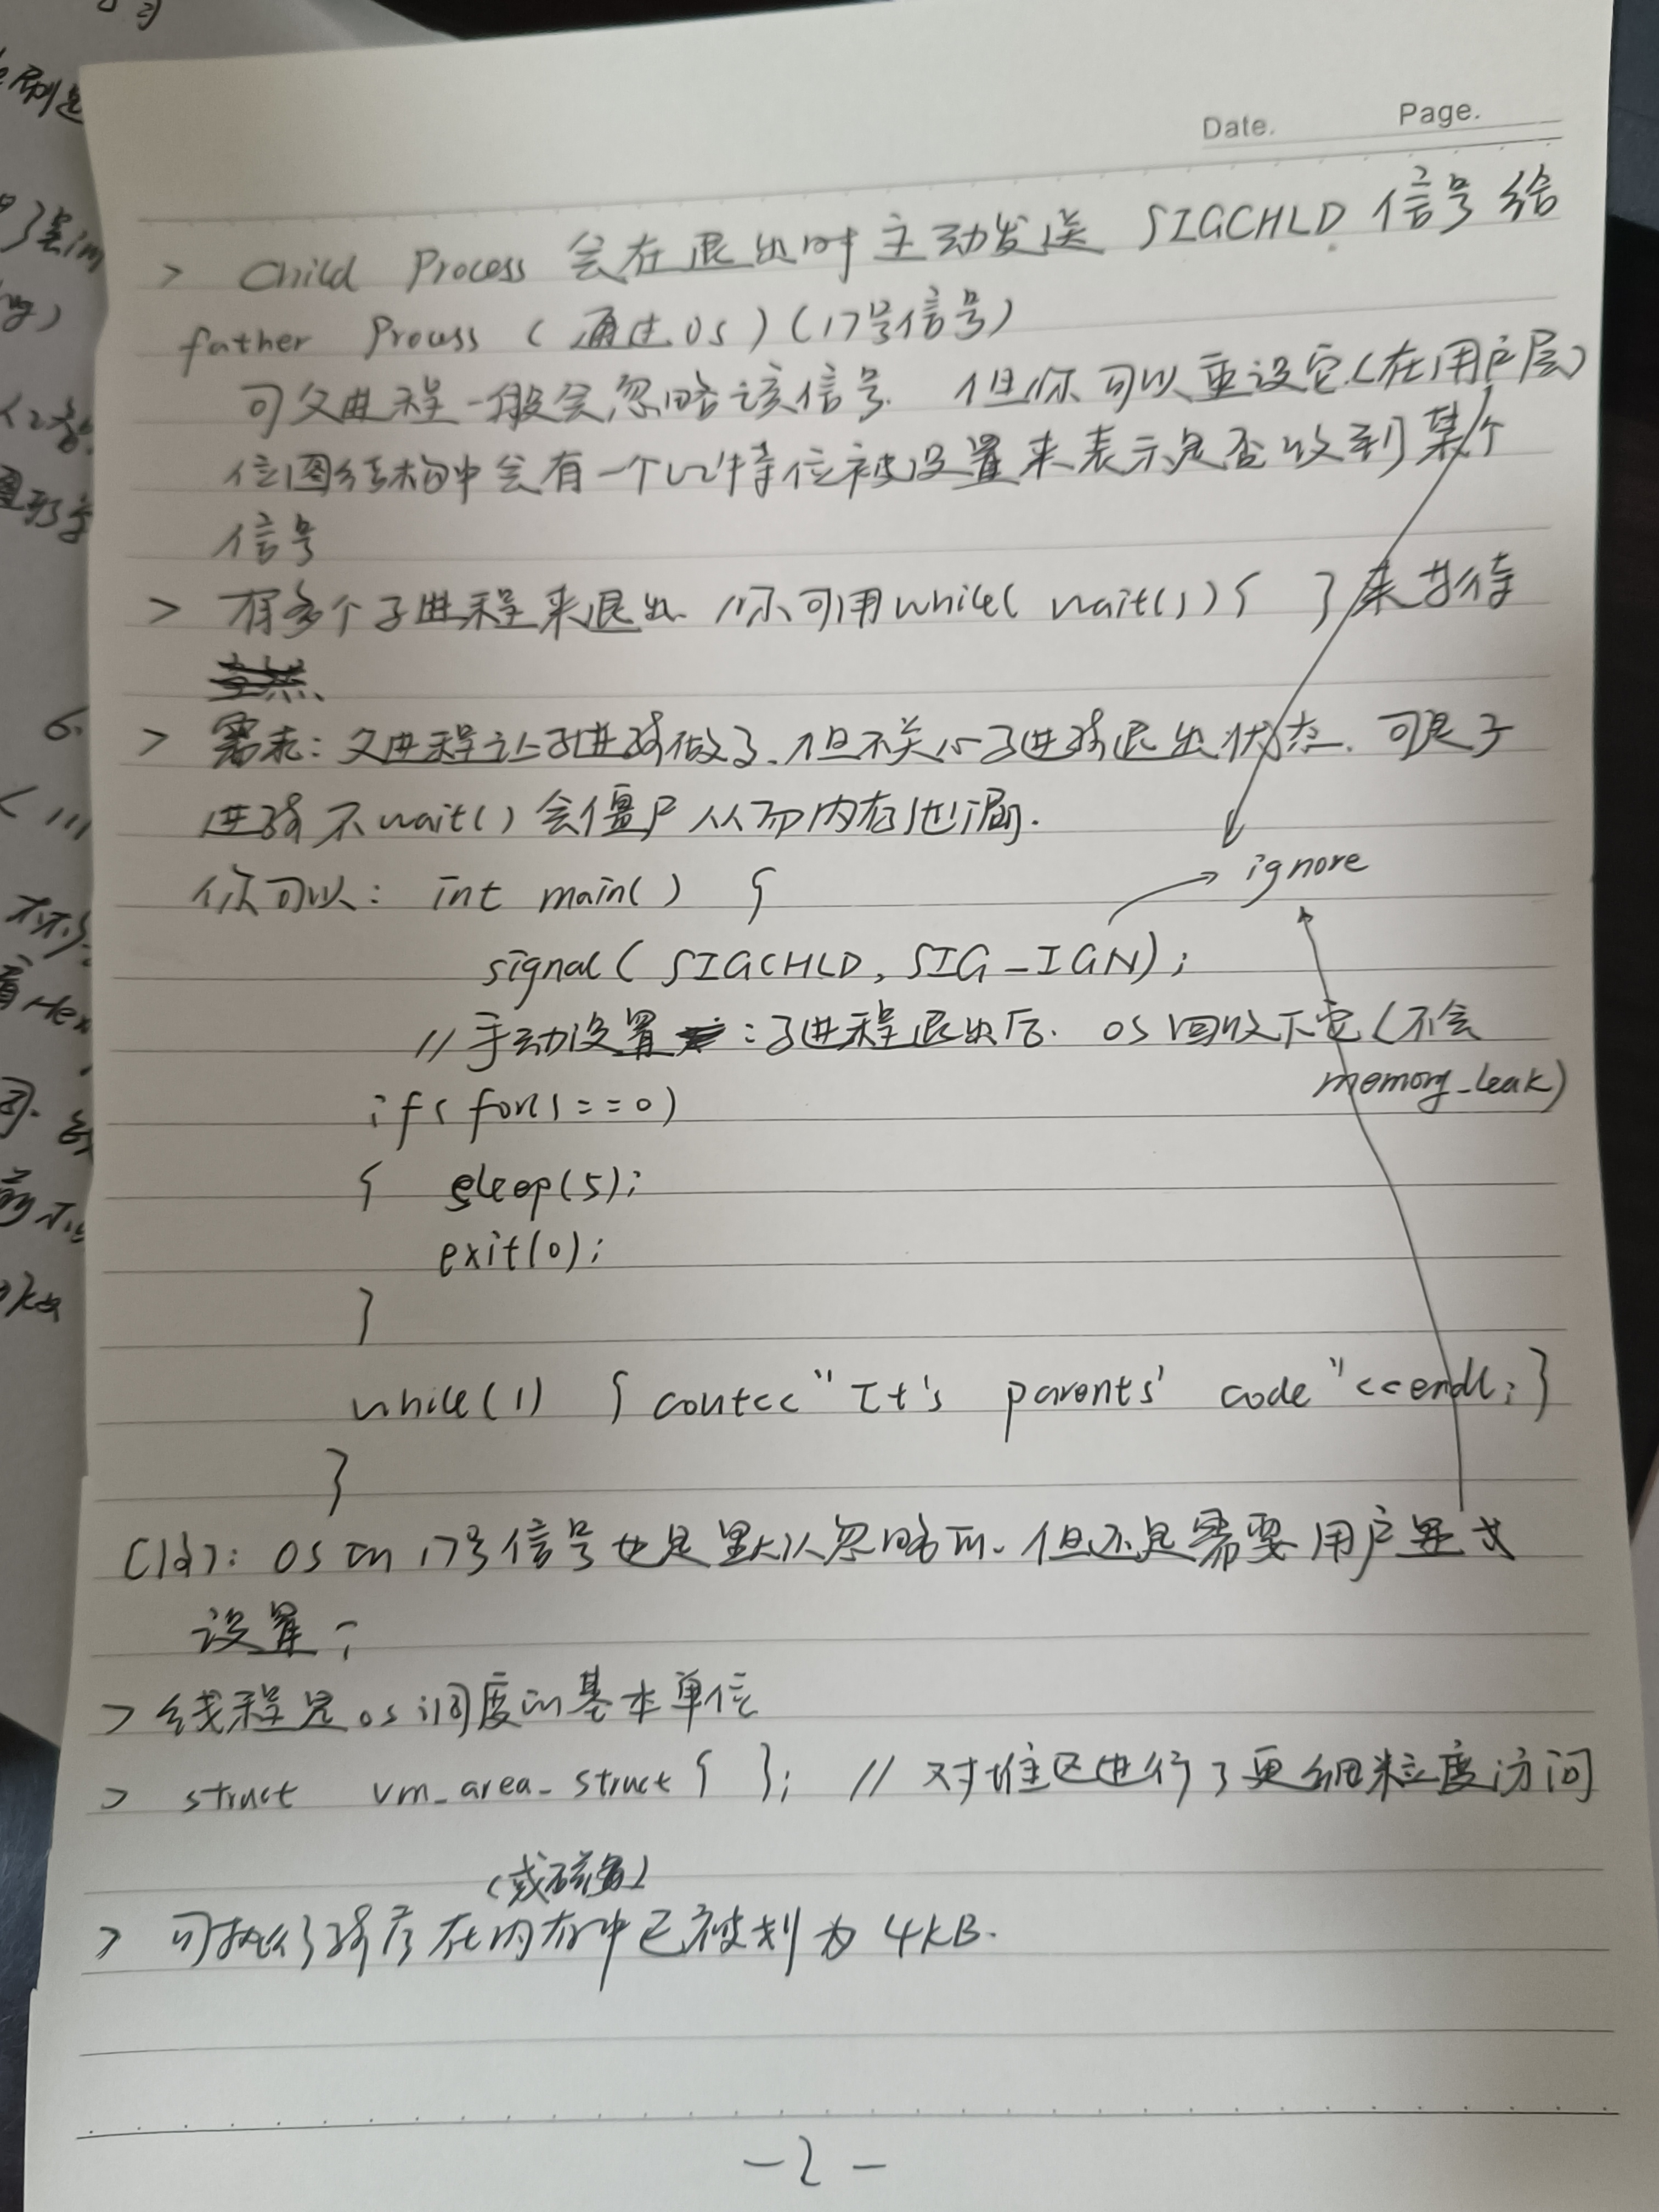 Date. Page.
> Child Process 会在退出时主动发送 SIGCHLD 信号给
father Process (通过OS) (17号信号)
可父进程一般会忽略该信号. 但你可以重设它(在用户层)
位图结构中会有一个比特位被设置来表示是否收到某个
信号
> 有多个子进程来退出 你可用while( wait()){ }来等待
> 需求: 父进程让子进程做了, 但不关心子进程退出状态. 可是子
进程不wait()会僵尸从而内存泄漏.
ignore
你可以: int main() {
signal( SIGCHLD, SIG_IGN);
// 手动设置 : 子进程退出后. OS回收下它(不会
memory_leak)
if( fork()==0)
{ sleep(5);
exit(0);
}
while(1) { cout<<"It's parents' code"<<endl; }
}
OS的17号信号也是默认忽略的. 但还是需要用户显式
设置;
> 线程是OS调度的基本单位
> struct vm_area_struct { }; // 对堆区进行了更细粒度访问
(或磁盘)
> 可执行程序在内存中已被划为4KB.
-2-